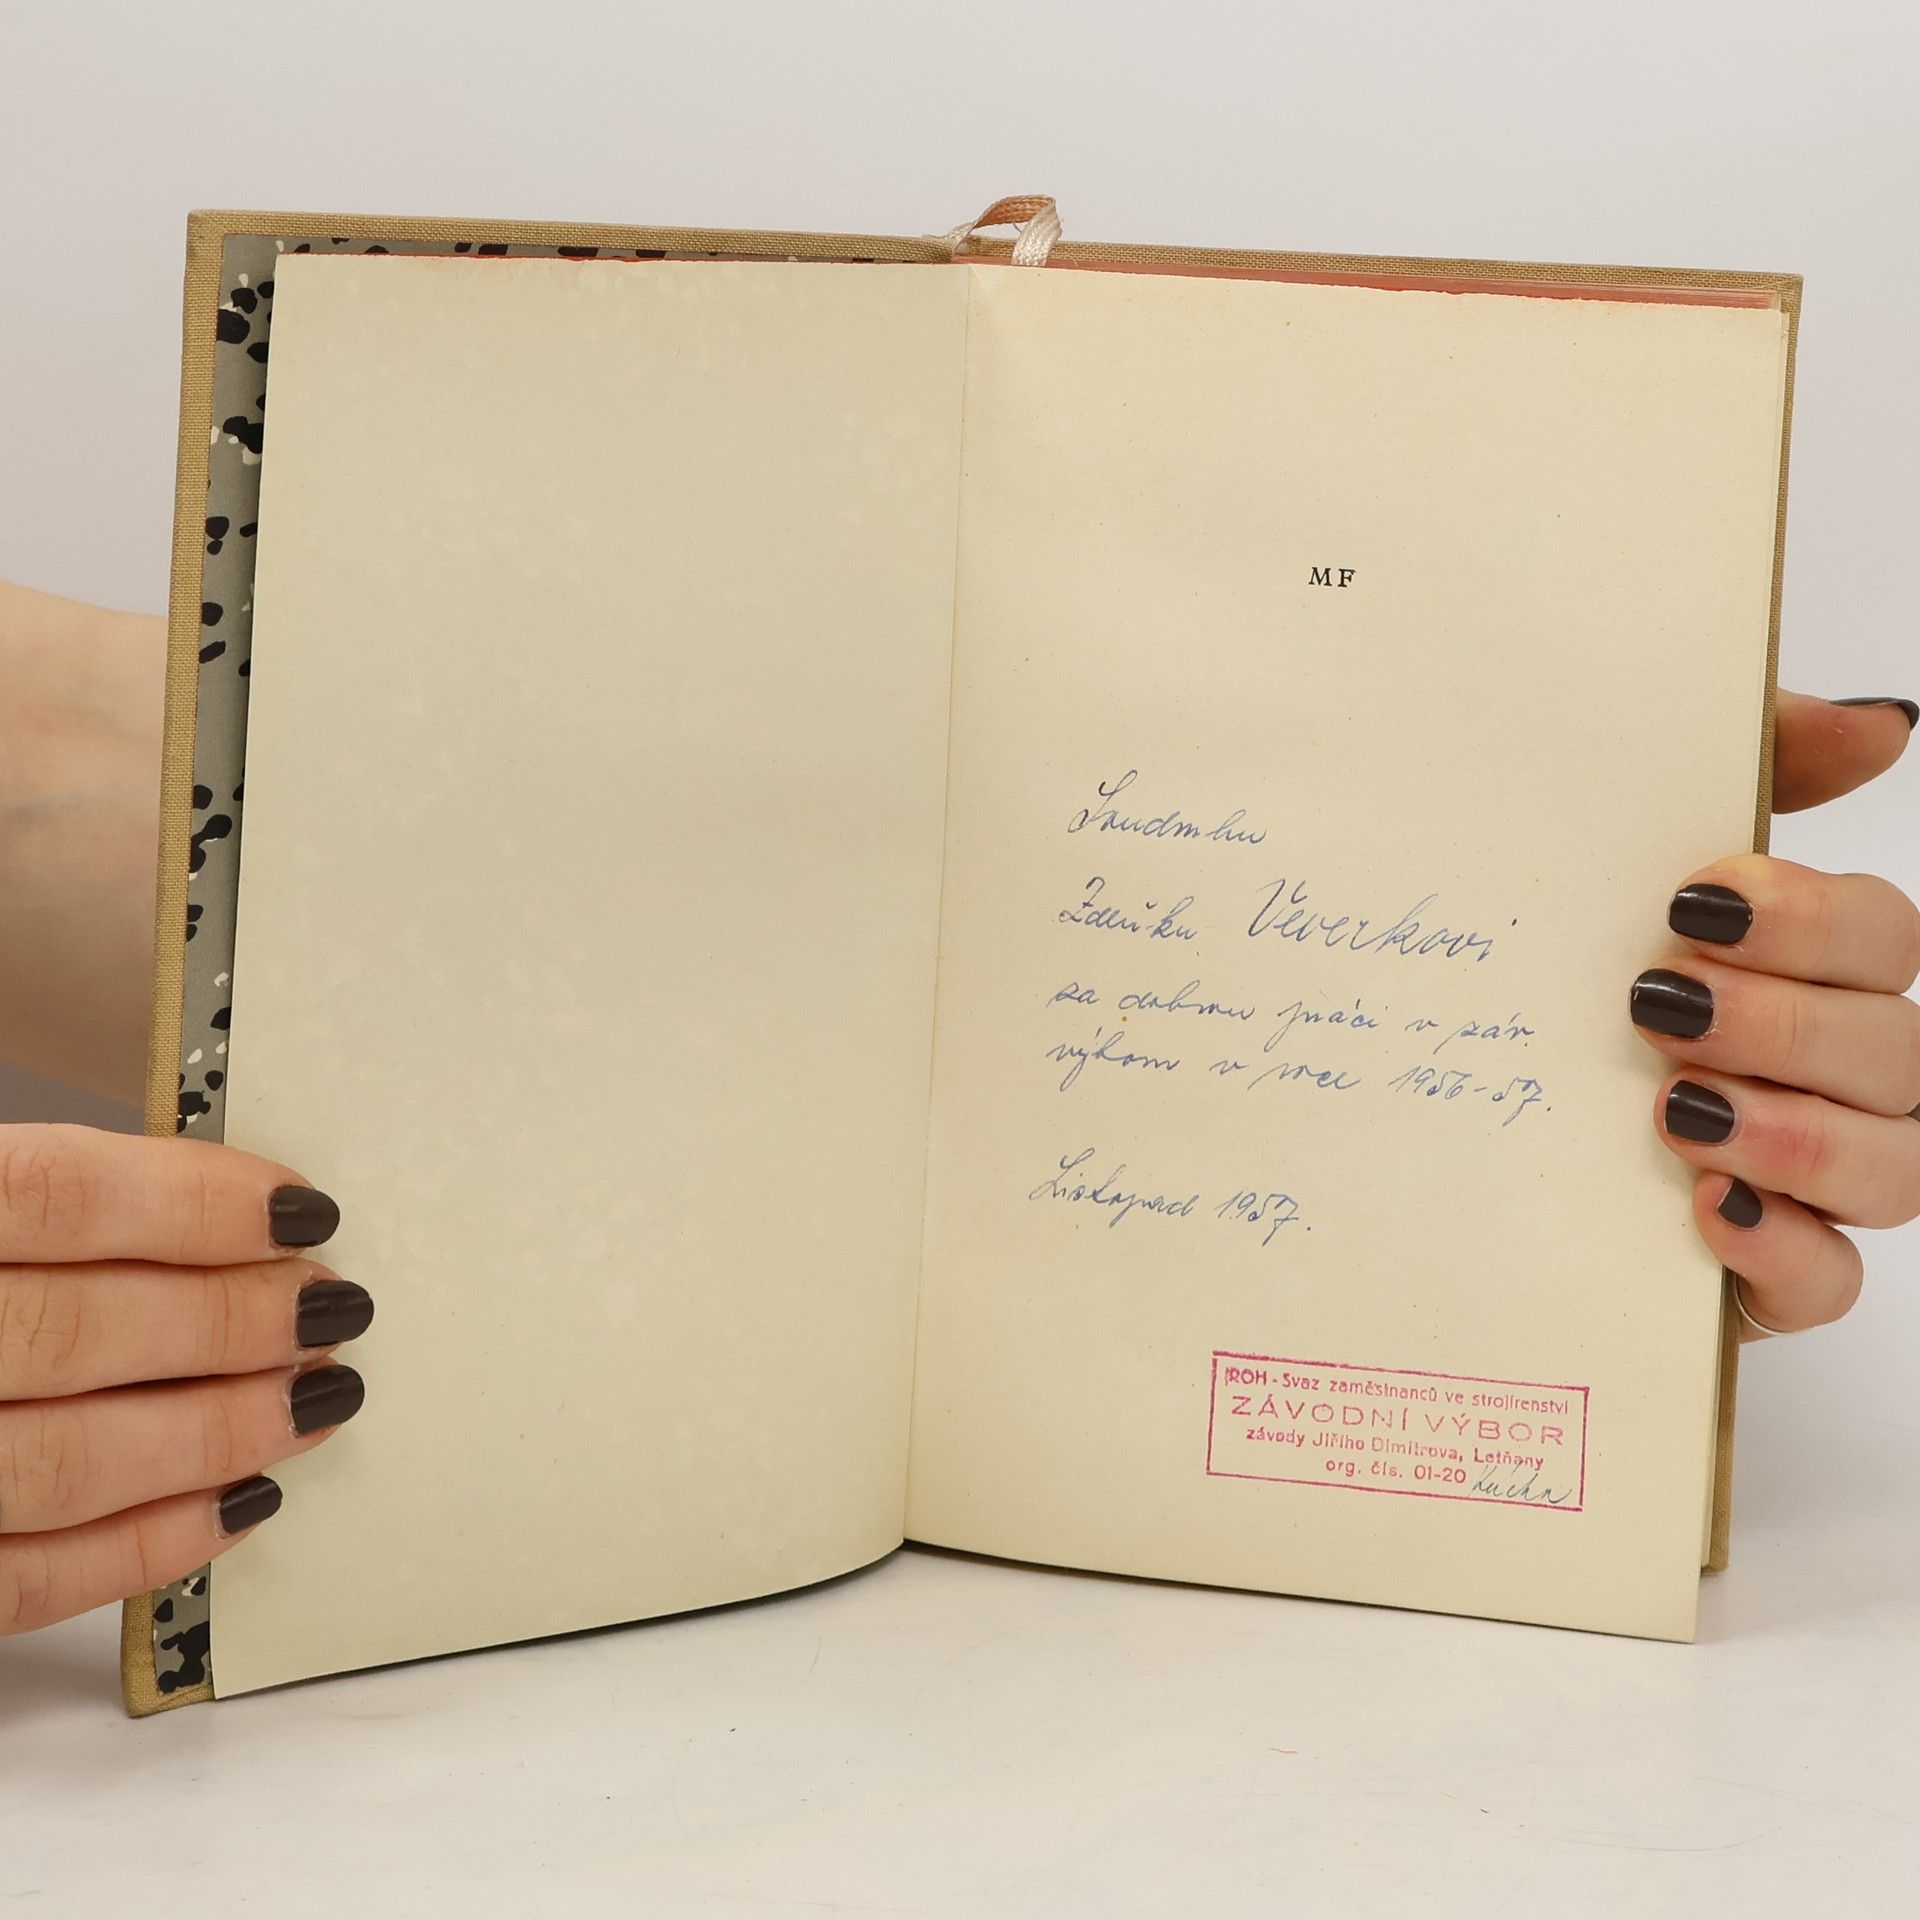 MF
Soudruhu
Zdeňku Veverkovi
za dobrou práci v záv.
výboru v roce 1956-57.
Listopad 1957.
ROH - Svaz zaměstnanců ve strojírenství
ZÁVODNÍ VÝBOR
závody Jiřího Dimitrova, Letňany
org. čís. 01-20